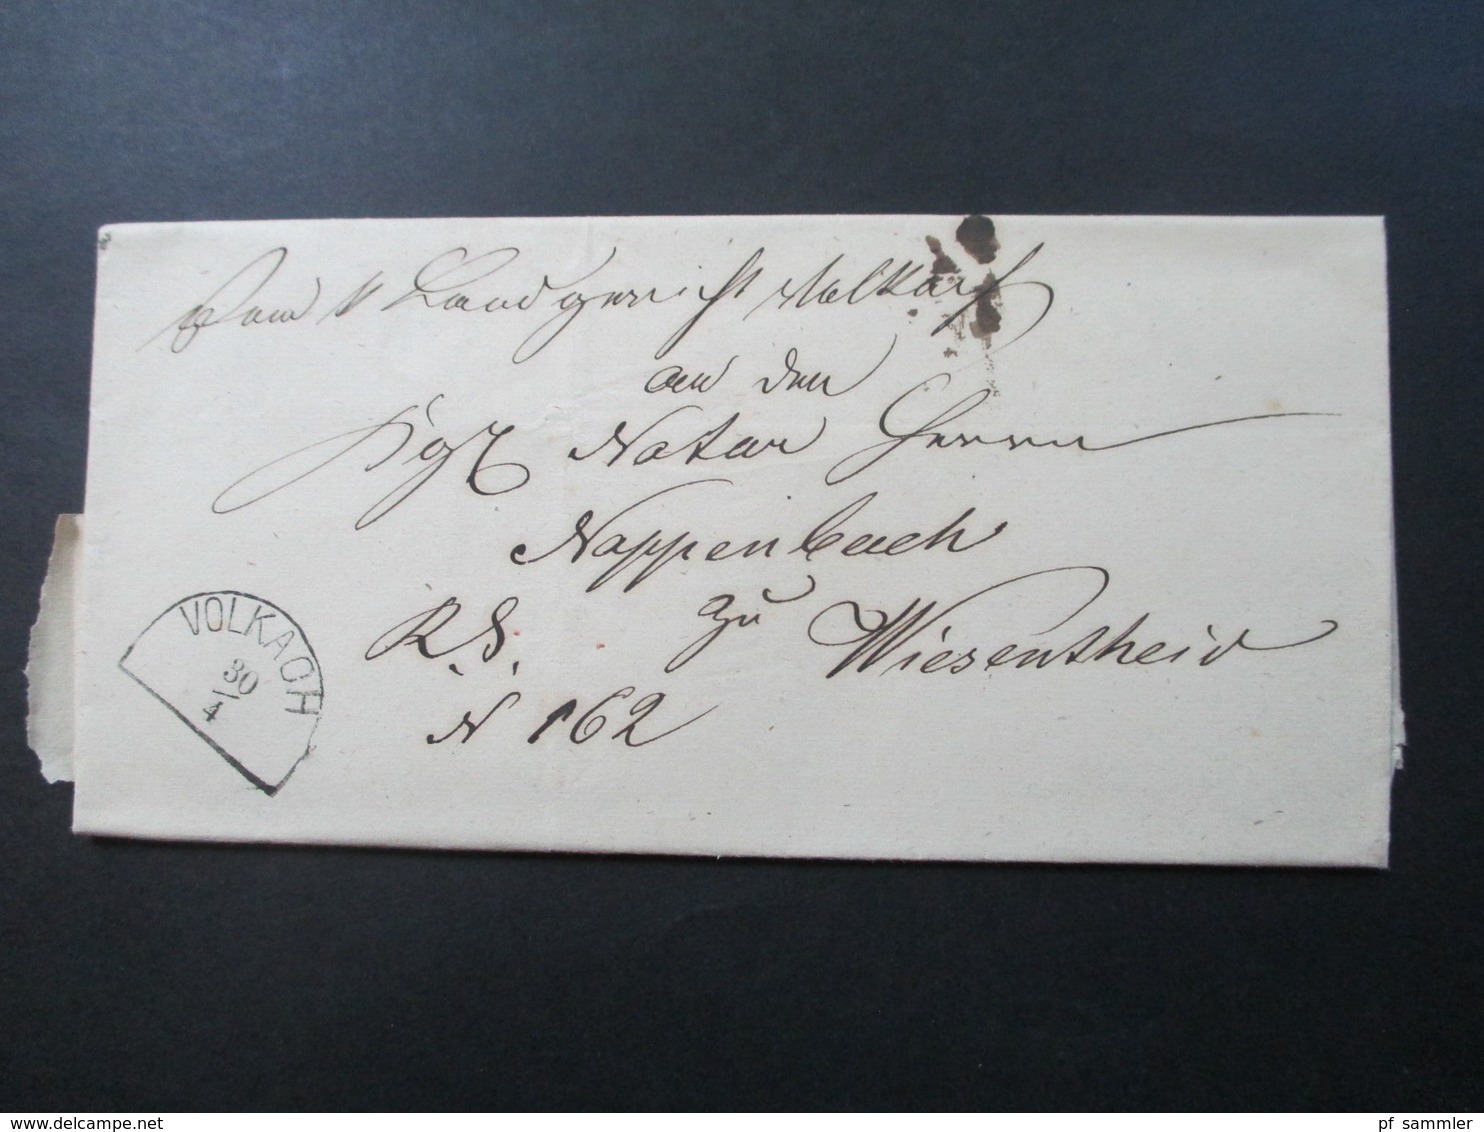 Vom k Landgericht Volkach
an den
Kgl Notar Herrn
Nappenbach
R. S. zu Wiesentheid
N 162
VOLKACH
30
4
www.delcampe.net
pf_sammler